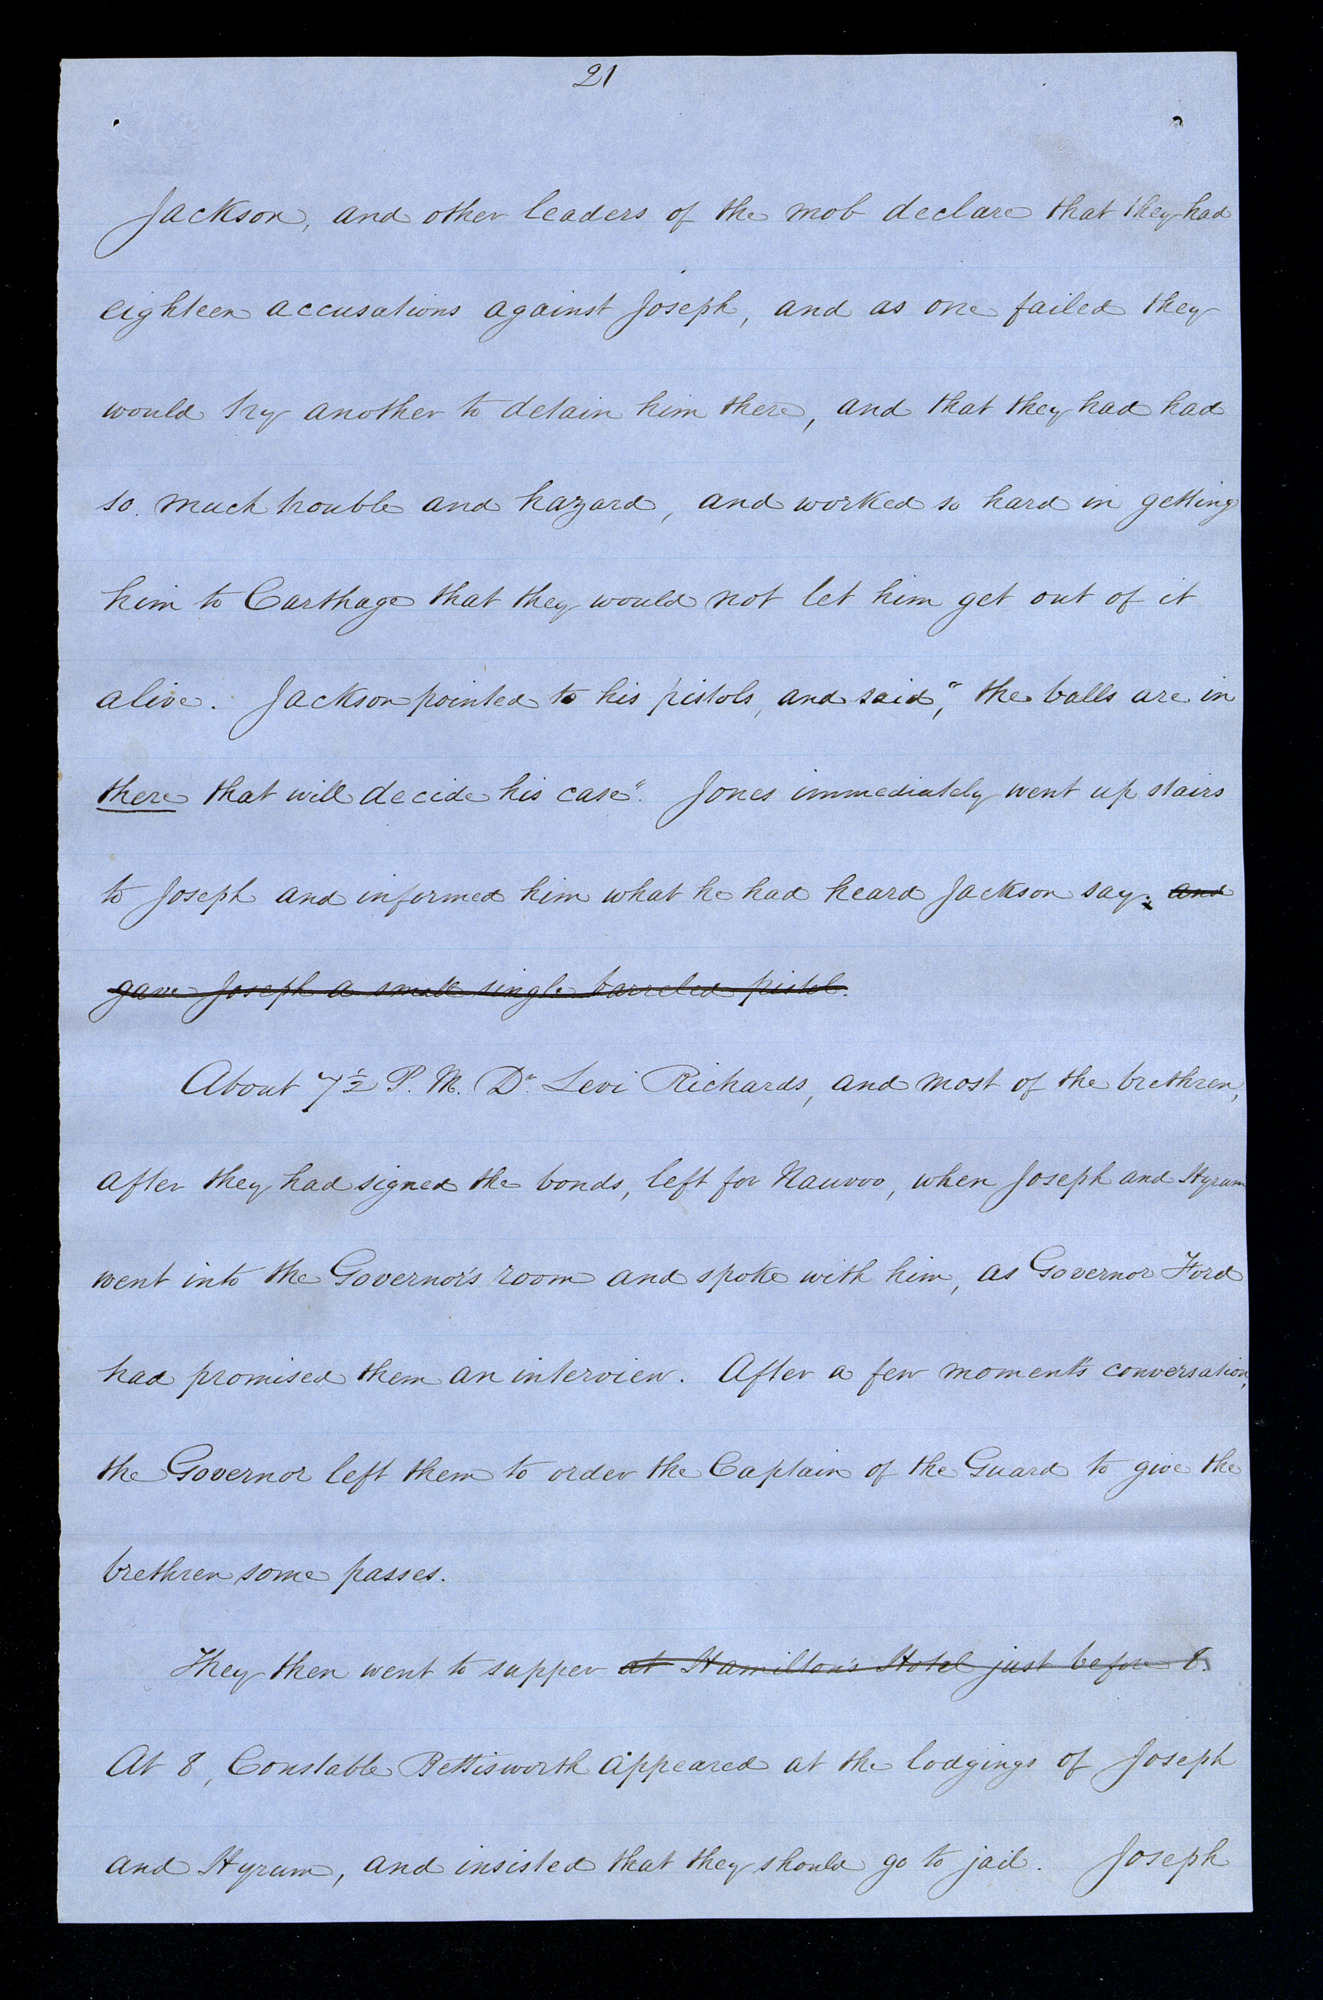 21
Jackson, and other leaders of the mob declare that they had
eighteen accusations against Joseph, and as one failed they
would try another to detain him there, and that they had had
so much trouble and hazard, and worked so hard in getting
him to Carthage that they would not let him get out of it
alive. Jackson pointed to his pistols, and said, "the balls are in
there that will decide his case". Jones immediately went up stairs
to Joseph and informed him what he had heard Jackson say. and
gave Joseph a small single barreled pistol.
About 7½ P. M. Dr Levi Richards, and most of the brethren,
after they had signed the bonds, left for Nauvoo, when Joseph and Hyrum
went into the Governor's room and spoke with him, as Governor Ford
had promised them an interview. After a few moment's conversation,
the Governor left them to order the Captain of the Guard to give the
brethren some passes.
They then went to supper at Hamilton's Hotel just before 8.
At 8, Constable Bettisworth appeared at the lodgings of Joseph
and Hyrum, and insisted that they should go to jail. Joseph